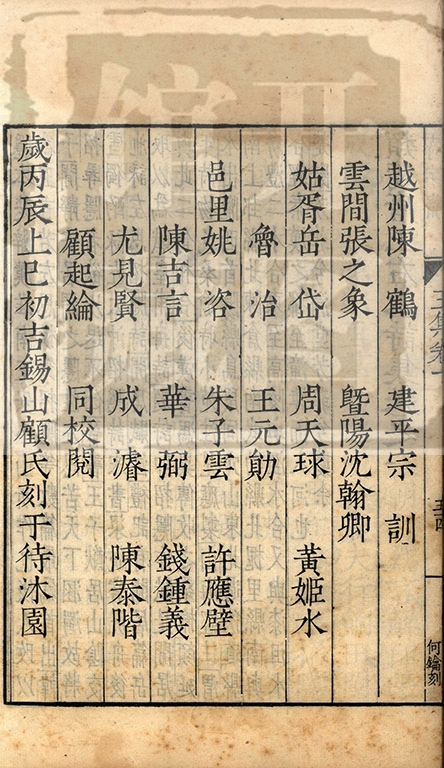 越州陳鶴 建平宗訓
雲間張之象 曁陽沈翰卿
姑胥岳岱 周天球 黃姬水
魯治 王元勛
邑里姚咨 朱子雲 許應壁
陳吉言 華弼 錢鍾義
尤見賢 成濬 陳泰階
顧起綸 同校閱
歲丙辰上巳初吉錫山顧氏刻于待沐園
何鑰刻